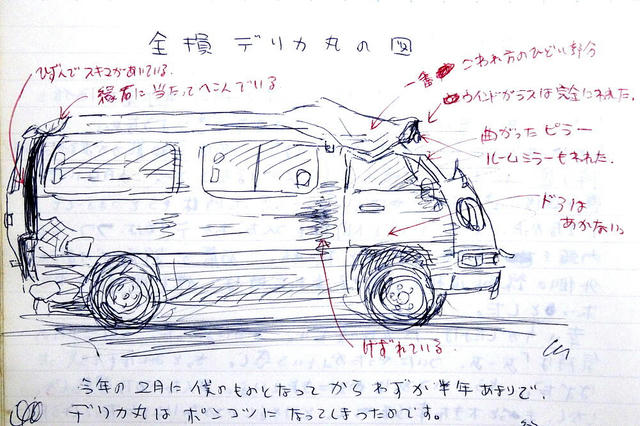 全損デリカ丸の図
ひずんでスキマがあいている.
縁石に当たってへこんでいる.
一番 こわれ方のひどい部分
ウインドガラスは完全にわれた.
曲がったピラー
ルームミラーもそれた.
ドアは
あかない
けずれている.
今年の2月に僕のものとなってからわずか半年あまりで、
デリカ丸はポンコツになってしまったのです。